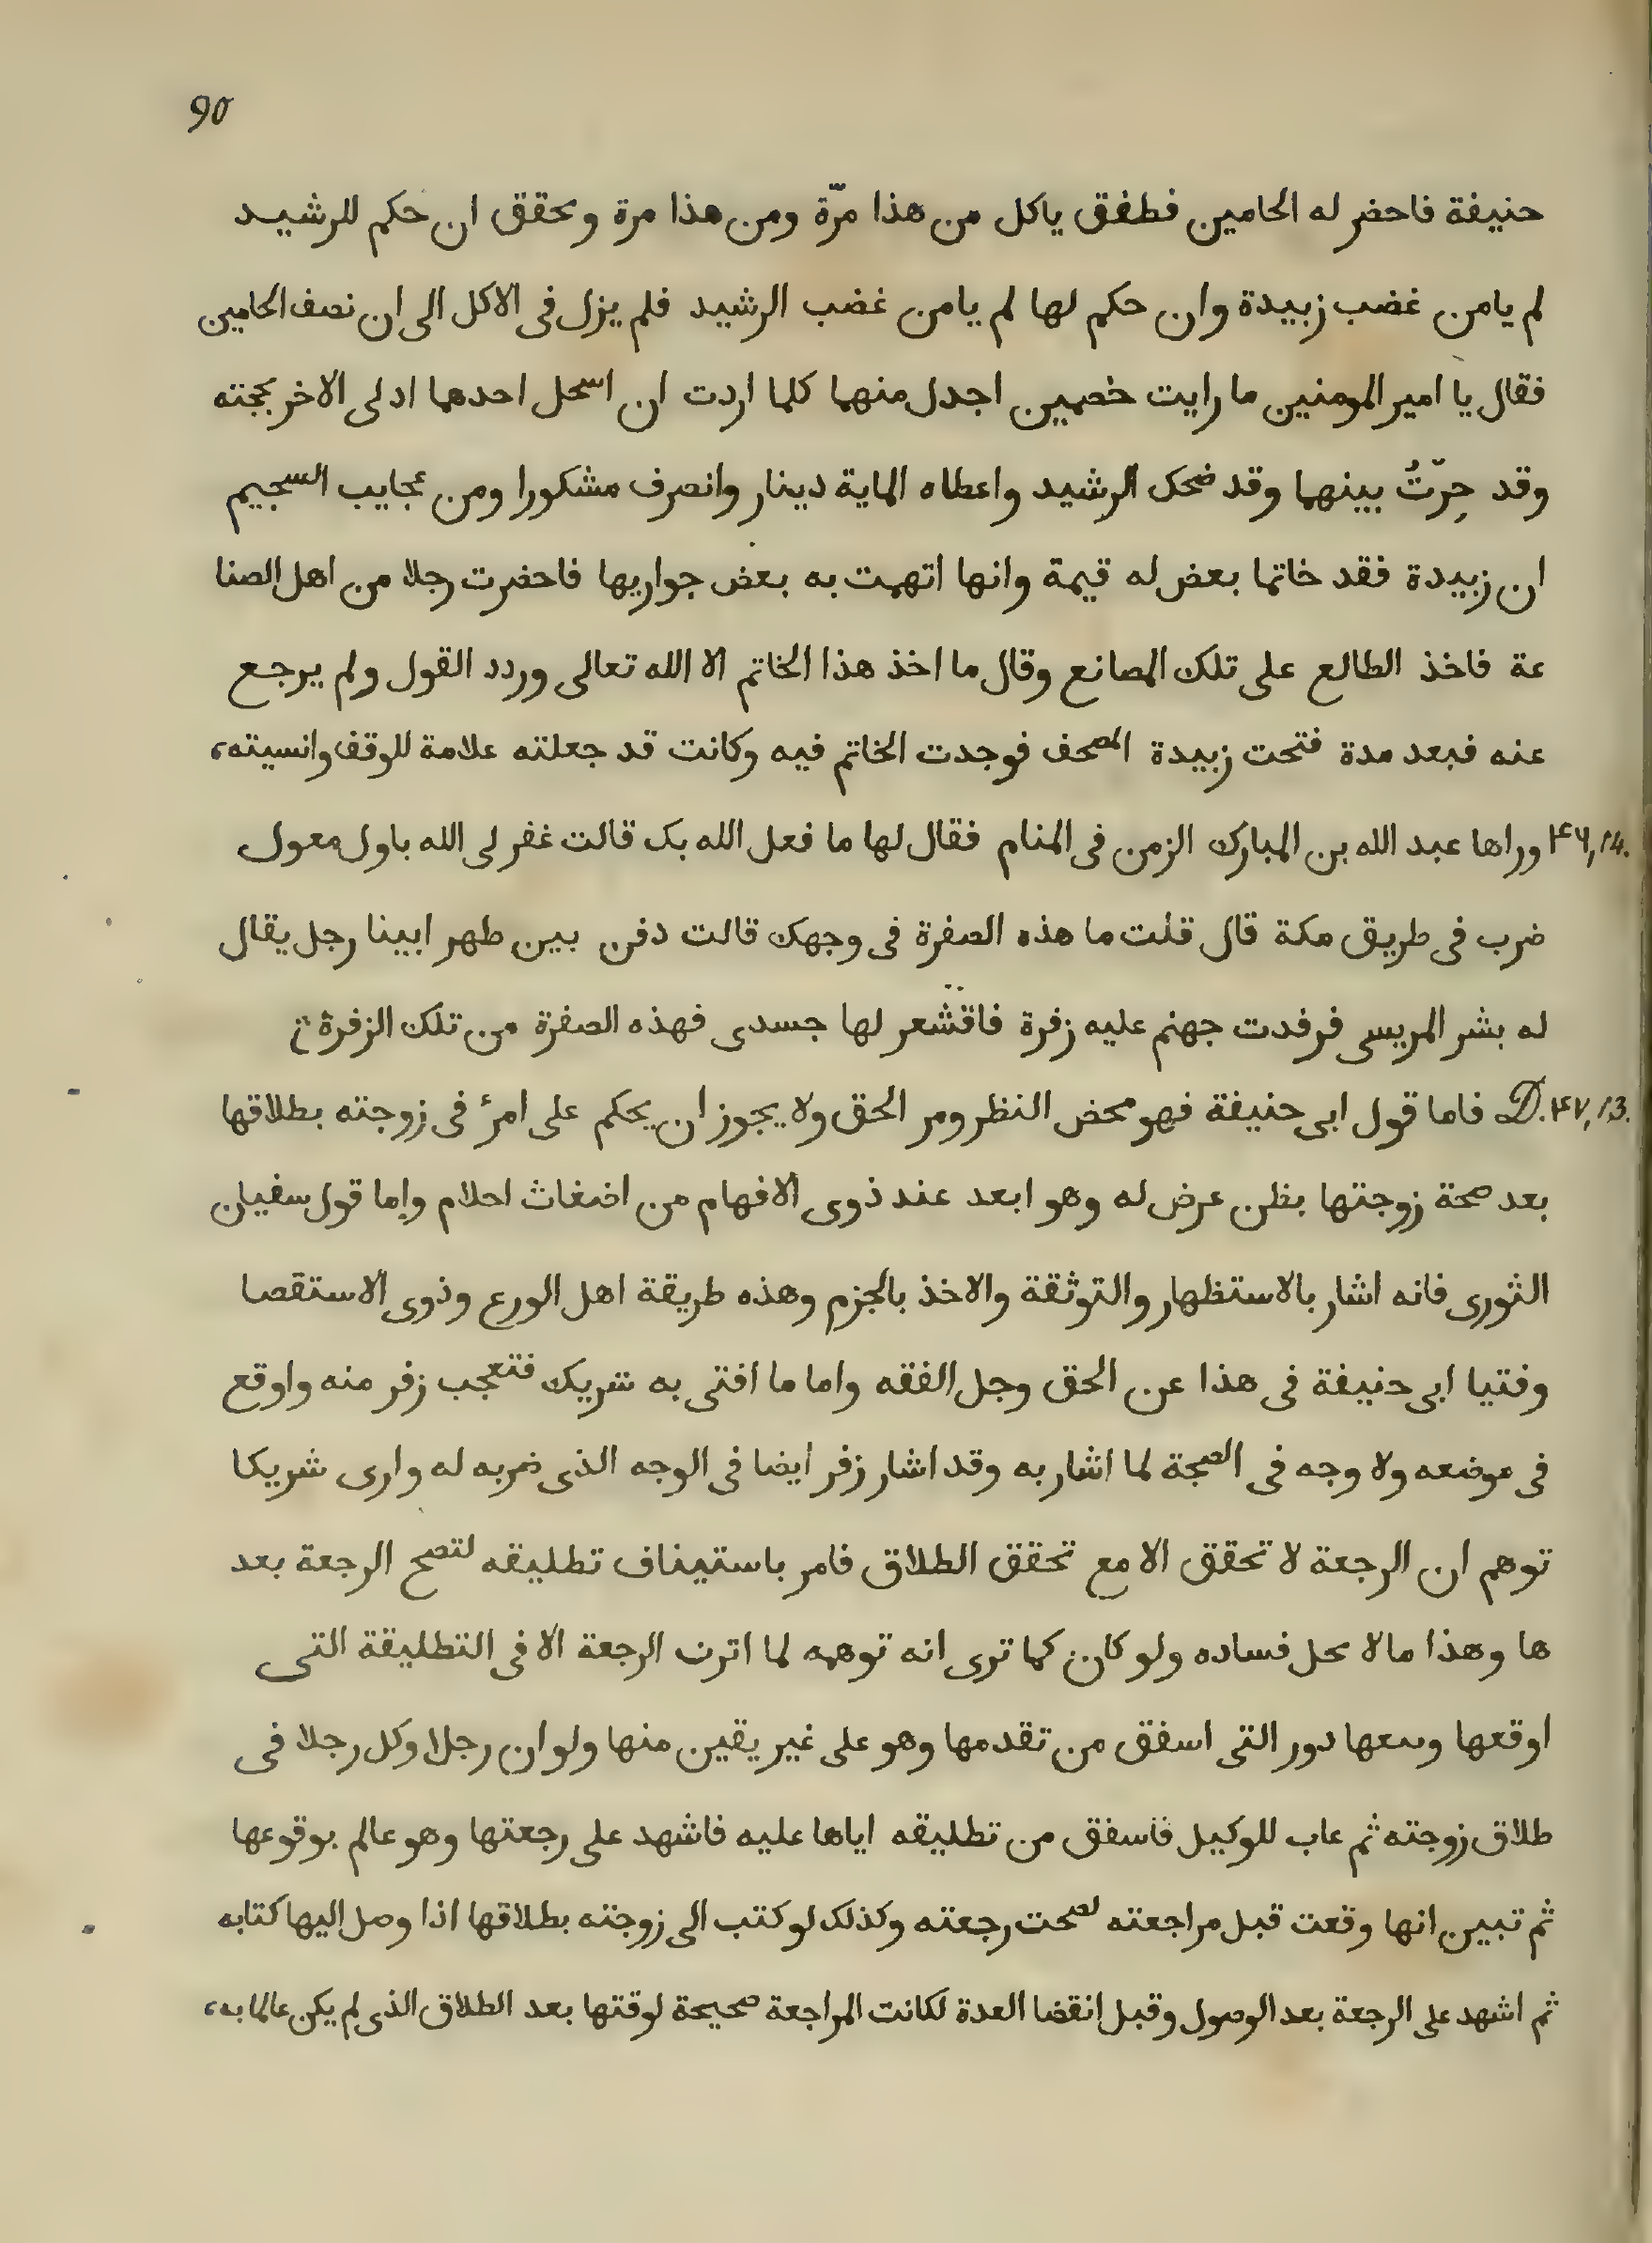 90
حنيفة فاحضر له الحامين فطفق ياكل من هذا مرّة ومن هذا مرة وتحقق ان حكم للرشيد
لم يامن غضب زبيدة وان حكم لها لم يامن غضب الرشيد فلم يزل فى الاكل الى ان نصف الحامين
فقال يا امير المومنين ما رايت خصمين اجدل منهما كلما اردت ان اسجل احدهما ادلى الاخر بحجته
وقد حِرّتُ بينهما وقد ضحك الرشيد واعطاه الماية دينار وانصرف مشكورا ومن عجايب السجيم
ان زبيدة فقد خاتما بعض له قيمة وانها اتهمت به بعض جواريها فاحضرت رجلا من اهل الصنا
عة فاخذ الطالع على تلك المصانع وقال ما اخذ هذا الخاتم الا الله تعالى وردد القول ولم يرجع
عنه فبعد مدة فتحت زبيدة المصحف فوجدت الخاتم فيه وكانت قد جعلته علامة للوقف وانسيته،
۴۶,14. وراها عبد الله بن المبارك الزمن فى المنام فقال لها ما فعل الله بك قالت غفر لى الله باول معول
ضرب فى طريق مكة قال قلت ما هذه الصفرة فى وجهك قالت دفن بين ظهر ابينا رجل يقال
له بشر المريسى فرفدت جهنم عليه زفرة فاقشعر لها جسدى فهذه الصفرة من تلك الزفرة
D. ۴۷,13. فاما قول ابى حنيفة فهو محض النظر ومر الحق ولا يجوز ان يحكم على امرئ فى زوجته بطلاقها
بعد صحة زوجتها بظن عرض له وهو ابعد عند ذوى الافهام من اضغاث احلام واما قول سفيان
الثورى فانه اشار بالاستظهار والتوثقة والاخذ بالجزم وهذه طريقة اهل الورع وذوى الاستقصا
وفتيا ابى حنيفة فى هذا عن الحق وجل الفقه واما ما افتى به شريك فتعجب زفر منه واوقع
فى موضعه ولا وجه فى الصحة لما اشار به وقد اشار زفر ايضا فى الوجه الذى ضربه له وارى شريكا
توهم ان الرجعة لا تحقق الا مع تحقق الطلاق فامر باستيناف تطليقه لتصح الرجعة بعد
ها وهذا مالا يحل فساده ولو كان كما ترى انه توهمه لما اثرت الرجعة الا فى التطليقة التى
اوقعها ومعها دور التى اسفق من تقدمها وهو على غير يقين منها ولو ان رجلا وكل رجلا فى
طلاق زوجته ثم عاب للوكيل فاسفق من تطليقه اياها عليه فاشهد على رجعتها وهو عالم بوقوعها
ثم تبين انها وقعت قبل مراجعته لصحت رجعته وكذلك لو كتب الى زوجته بطلاقها اذا وصل اليها كتابه
ثم اشهد على الرجعة بعد الوصول وقبل انقضا العدة لكانت المراجعة صحيحة لوقتها بعد الطلاق الذى لم يكن عالما به،